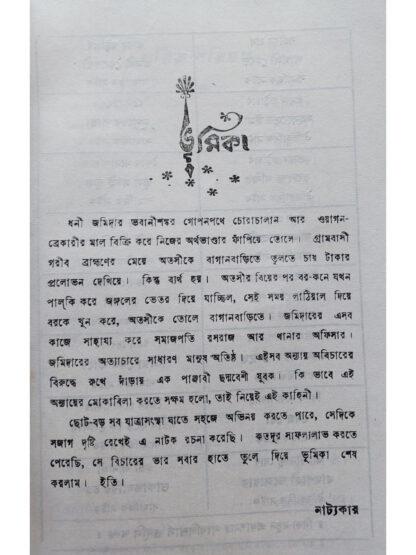 ভূমিকা
ধনী জমিদার ভবানীশঙ্কর গোপনপথে চোরাচালান আর ওয়াগন-
ব্রেকারীর মাল বিক্রি করে নিজের অর্থভাণ্ডার ফাঁপিয়ে তোলে। গ্রামবাসী
গরীব ব্রাহ্মণের মেয়ে অতসীকে বাগানবাড়িতে তুলতে চায় টাকার
প্রলোভন দেখিয়ে। কিন্তু ব্যর্থ হয়। অতসীর বিয়ের পর বর-কনে যখন
পাল্‌কি করে জঙ্গলের ভেতর দিয়ে যাচ্ছিল, সেই সময় লাঠিয়াল দিয়ে
বরকে খুন করে, অতসীকে তোলে বাগানবাড়িতে। জমিদারের এসব
কাজে সাহায্য করে সমাজপতি রসরাজ আর থানার অফিসার।
জমিদারের অত্যাচারে সাধারণ মানুষ অতিষ্ঠ। এইসব অন্যায় অবিচারের
বিরুদ্ধে রুখে দাঁড়ায় এক পাঞ্জাবী ছদ্মবেশী যুবক। কি ভাবে এই
অন্যায়ের মোকাবিলা করতে সক্ষম হলো, তাই নিয়েই এই কাহিনী।
ছোট-বড় সব যাত্রাসংস্থা যাতে সহজে অভিনয় করতে পারে, সেদিকে
সজাগ দৃষ্টি রেখেই এ নাটক রচনা করেছি। কতদূর সাফল্যলাভ করতে
পেরেছি, সে বিচারের ভার সবার হাতে তুলে দিয়ে ভূমিকা শেষ
করলাম। ইতি।
নাট্যকার